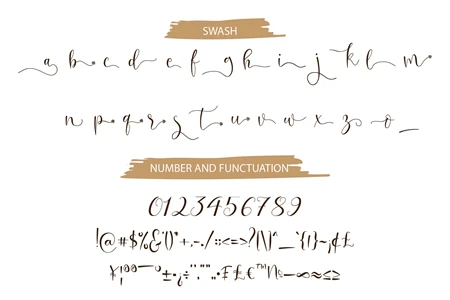 SWASH
a b c d e f g h i j k l m
n p q r s t u v w x z o _
NUMBER AND FUNCTUATION
0123456789
!@#$%&()*+,-./:;<=>?[\]^_`{|}~¡¢£